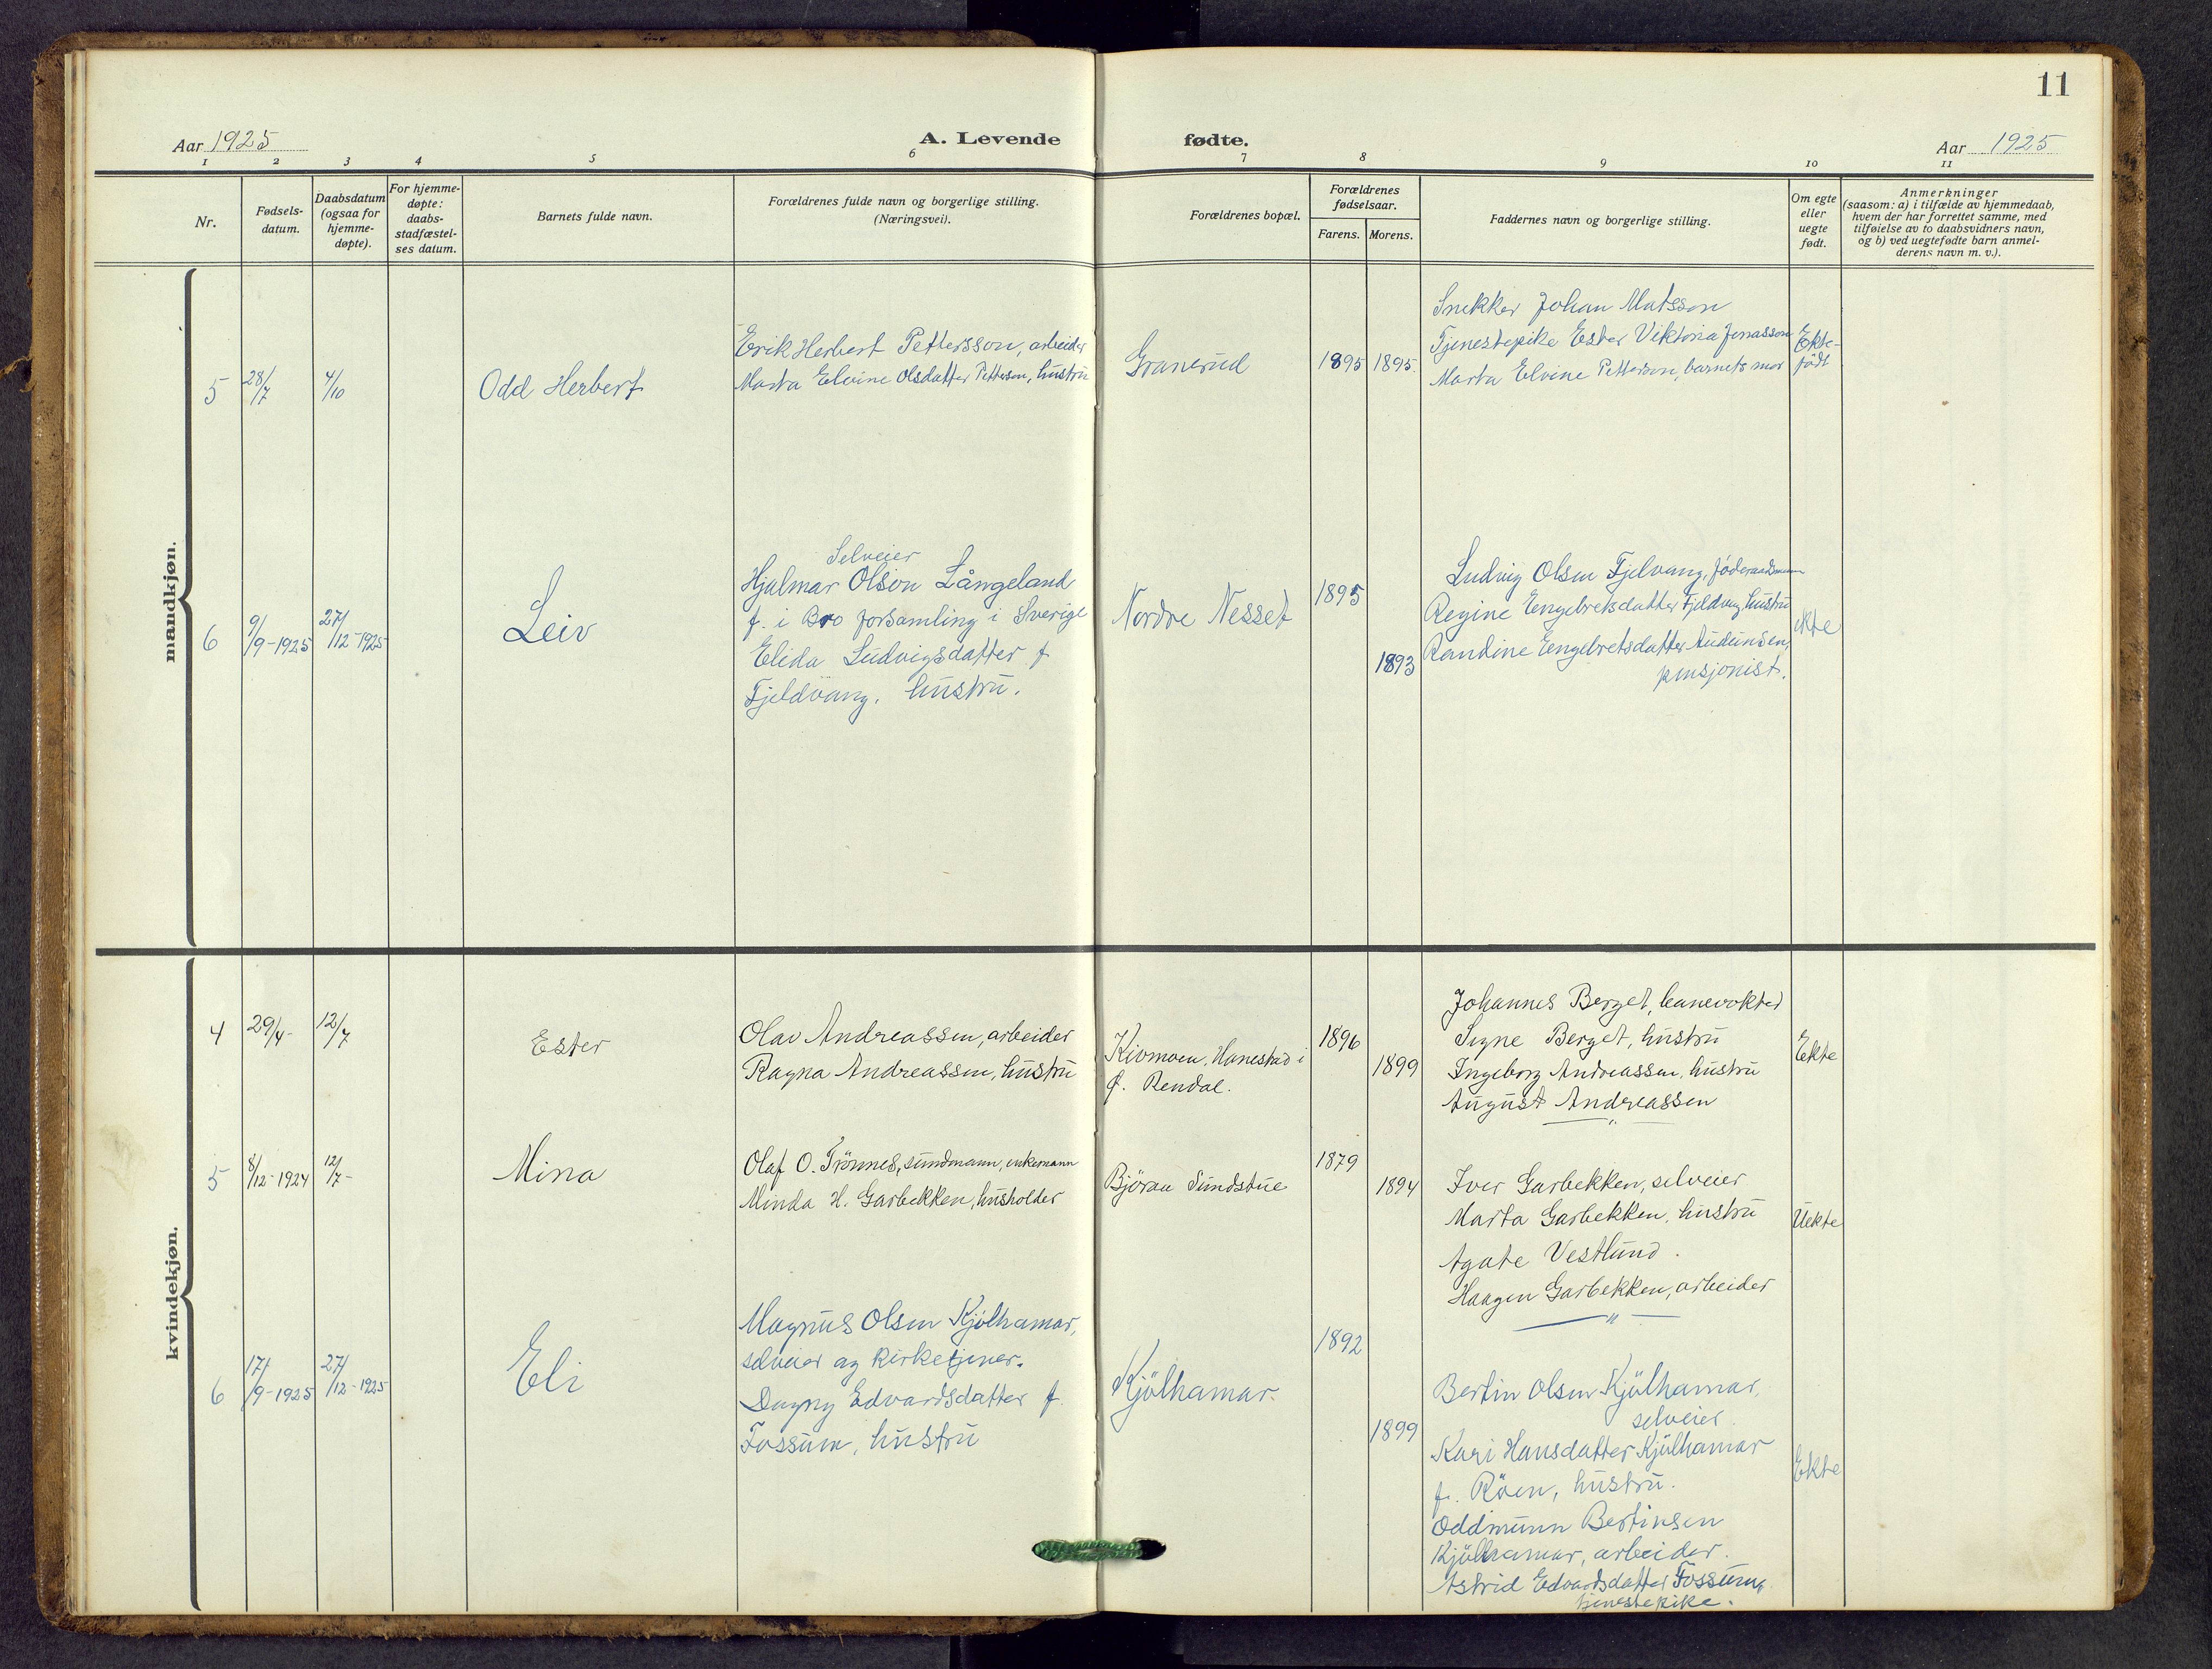 11
Aar 1925
A. Levende fødte.
Aar 1925
1 2 3 4 5 6 7 8 9 10 11
Nr.
Fødsels-
datum.
Daabsdatum
(ogsaa for
hjemme-
døpte).
For hjemme-
døpte:
daabs-
stadfæstel-
ses datum.
Barnets fulde navn.
Forældrenes fulde navn og borgerlige stilling.
(Næringsvei).
Forældrenes bopæl.
Forældrenes
fødselsaar.
Farens. Morens.
Faddernes navn og borgerlige stilling.
Om egte
eller
uegte
født.
Anmerkninger
(saasom: a) i tilfælde av hjemmedaab,
hvem der har forrettet samme, med
tilføielse av to daabsvidners navn,
og b) ved uegtefødte barn anmel-
derens navn m. v.).
mandkjøn.
5
28/7
4/10
Odd Herbert
Erik Herbert Pettersson, arbeider
Marta Elvine Olsdatter Petterson, hustru
Granerud
1895 1895.
Snekker Johan Matsson
Tjenestepike Ester Viktoria Jonasson
Marta Elvine Petterson, barnets mor
Ekte-
født
6
9/9-1925
27/12-1925
Leiv
Selveier
Hjalmar Olson Långeland
f. i Bro forsamling i Sverige
Elida Ludvigsdatter f
Fjeldvang. hustru.
Nordre Nesset
1895
1893
Ludvig Olsen Fjelvang, föderaadsmann
Regine Engebretsdatter Fjeldvang hustru
Randine Engebretsdatter Audunsen,
pensjonist.
ekte
kvindekjøn.
4
29/4-
12/7
Ester
Olav Andreassen, arbeider
Ragna Andreassen, hustru
Kivmoen, Hanestad i
Ø. Rendal.
1896
1899
Johannes Berget, banevokter
Signe Berget, hustru
Ingeborg Andreassen, hustru
August Andreassen
— " —
Ekte
5
8/12-1924
12/7-
Mina
Olaf O. Trönnes, sundmann, enkemann
Minda H. Garbekken, husholder
Björaa Sundstue
1879
1894
Iver Garbekken, selveier
Marta Garbekken, hustru
Agate Vestlund.
Haagen Garbekken, arbeider
— " —
Uekte
6
17/9-1925
27/12-1925
Eli
Magnus Olsen Kjölhamar,
selveier og kirketjener.
Dagny Edvardsdatter f.
Fossum, hustru
Kjölhamar.
1892
1899
Bertin Olsen Kjölhamar,
selveier.
Kari Hansdatter Kjölhamar
f. Röen, hustru.
Oddmunn Bertinsen
Kjölhamar, arbeider.
Astrid Edvardsdatter Fossum,
tjenestepike.
Ekte